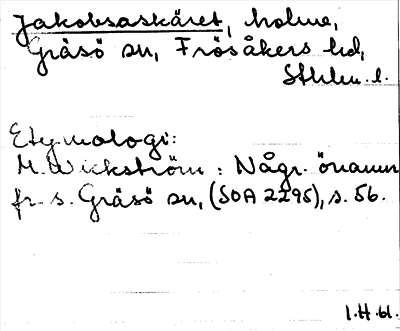 Jakobsaskäret, holme,
Gräsö sn, Frösåkers hd,
Sthlm. l.
Etymologi:
M. Wickström: Någr. önamn
fr. s. Gräsö sn, (SOA 2295), s. 56.
I.H. 61.